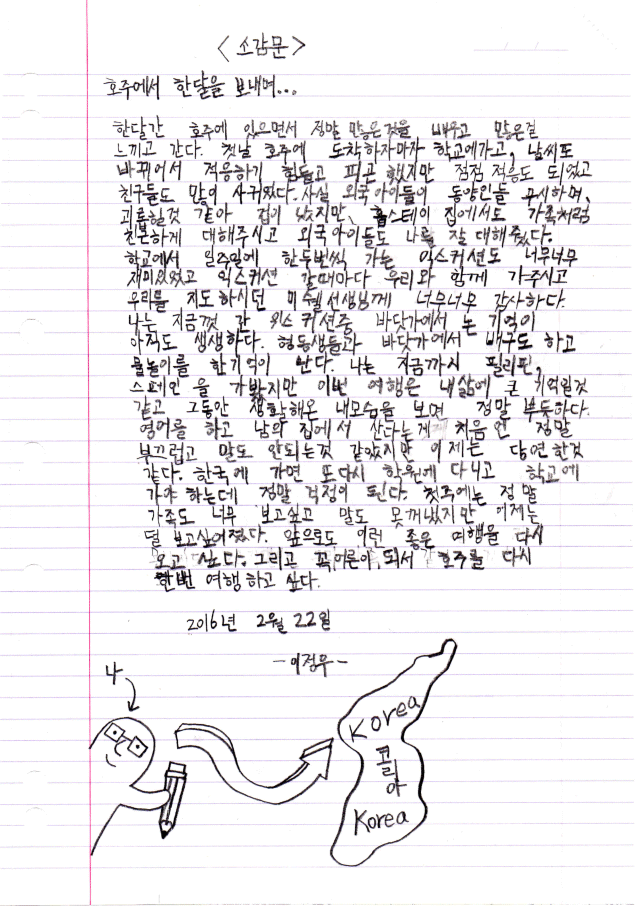 <소감문>
호주에서 한달을 보내며...
한달간 호주에 있으면서 정말 많은것을 배우고 많은걸
느끼고 간다. 첫날 호주에 도착하자마자 학교에가고, 날씨도
바뀌어서 적응하기 힘들고 피곤했지만 점점 적응도 되었고
친구들도 많이 사귀었다. 사실 외국아이들이 동양인들 무시하며,
괴롭힐것 같아 겁이 났지만, 홈스테이 집에서도 가족처럼
친근하게 대해주시고 외국아이들도 나를 잘 대해주었다.
학교에서 일주일에 한두번씩 가는 익스커션도 너무너무
재미있었고 익스커션 갈때마다 우리와 함께 가주시고
우리를 지도하시던 미쉘선생님께 너무너무 감사하다.
나는 지금껏 간 익스커션중 바닷가에서 논 기억이
아직도 생생하다. 형동생들과 바닷가에서 배구도 하고
물놀이를 한기억이 난다. 나는 지금까지 필리핀,
스페인 을 가봤지만 이번 여행은 내삶에 큰 기억일것
같고 그동안 생활해온 내모습을 보면 정말 뿌듯하다.
영어를 하고 남의 집에서 산다는게 처음엔 정말
부끄럽고 말도 안되는것 같았지만 이제는 당연한것
같다. 한국에 가면 또다시 학원에 다니고 학교에
가야 하는데 정말 걱정이 된다. 첫주에는 정말
가족도 너무 보고싶고 말도 못꺼냈지만 이제는
덜 보고싶어졌다. 앞으로도 이런 좋은 여행을 다시
오고 싶다. 그리고 꼭 어른이 되서 호주를 다시
한번 여행하고 싶다.
2016년 2월 22일
-이정우-
나
Korea
코리아
Korea